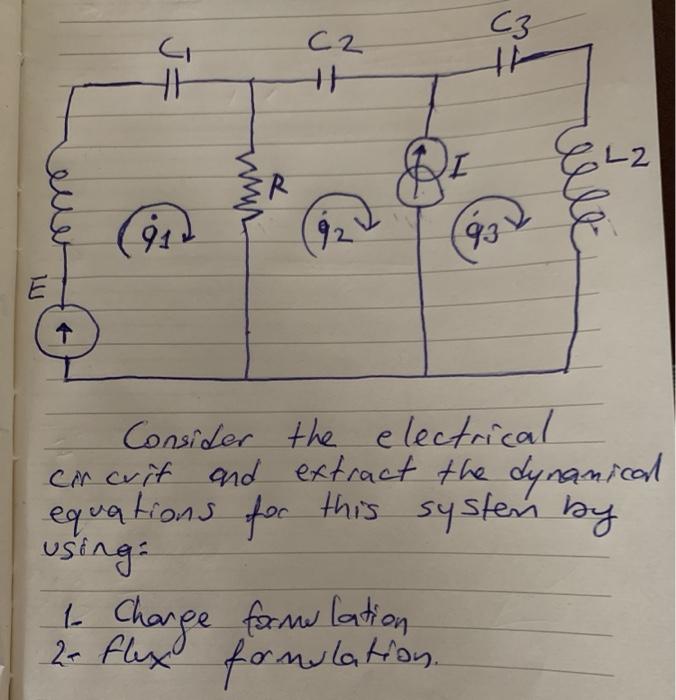 C1 C2 C3
R I L2
q̇1 q̇2 q̇3
E
Consider the electrical
circuit and extract the dynamical
equations for this system by
using:
1- Charge formulation
2- flux formulation.